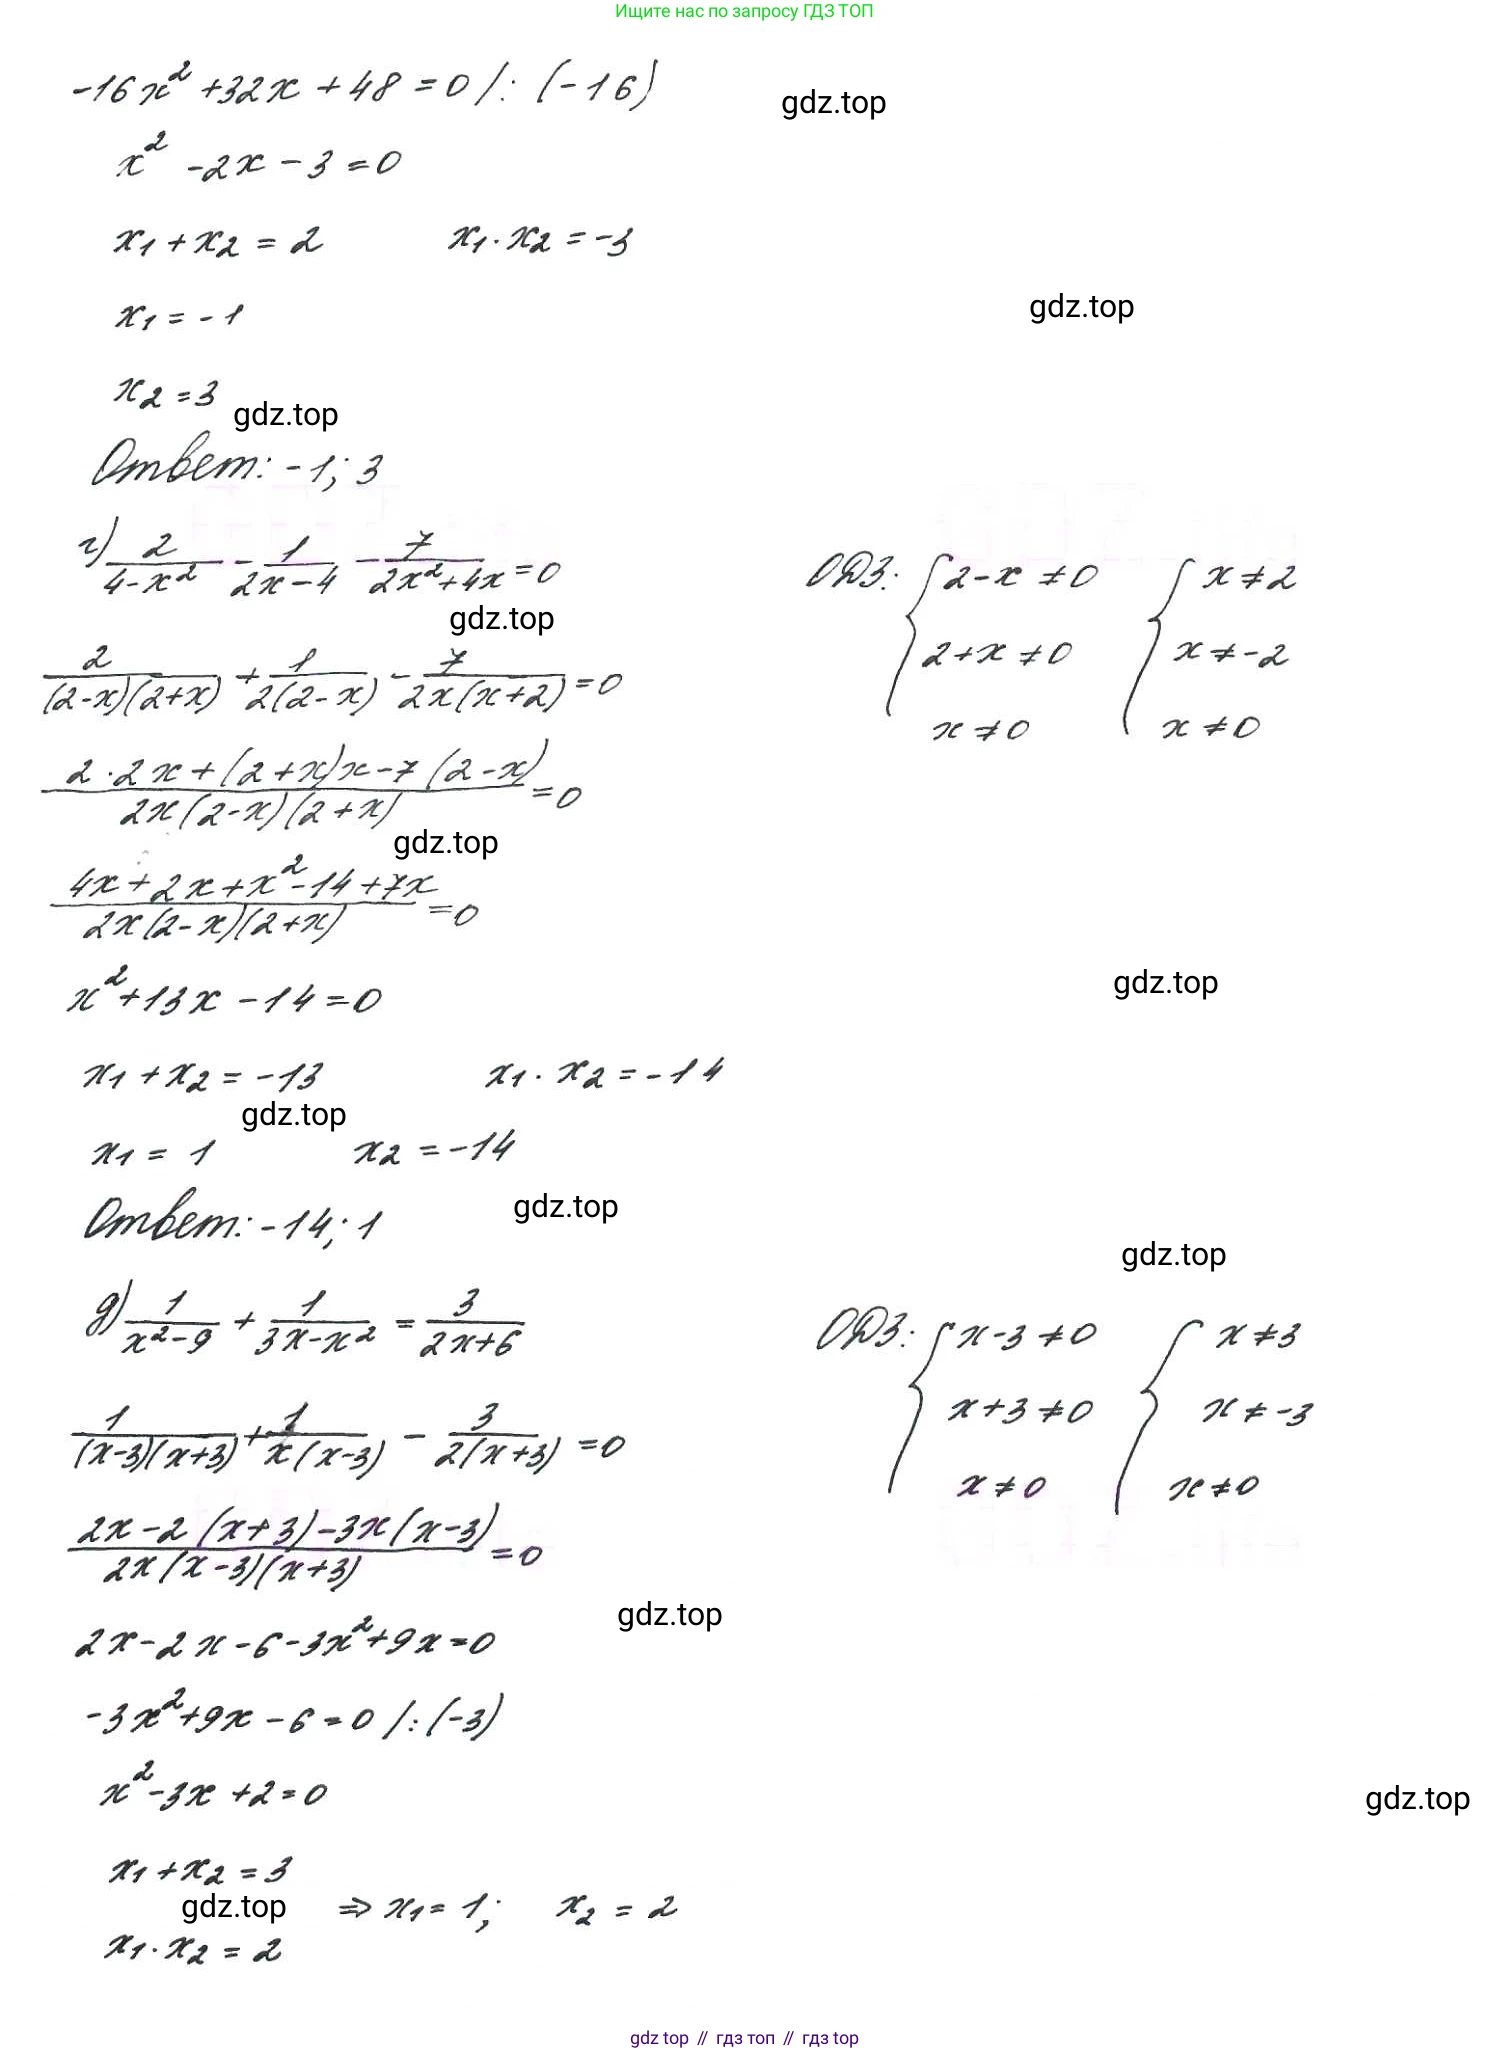 Ищите нас по запросу ГДЗ ТОП
-16x² +32x + 48 = 0 /: (-16)
gdz.top
x² -2x - 3 = 0
x₁ + x₂ = 2 x₁ · x₂ = -3
x₁ = -1
gdz.top
x₂ = 3
gdz.top
Ответ: -1; 3
г) 2/(4-x²) - 1/(2x-4) - 7/(2x²+4x) = 0 ОДЗ: { 2-x ≠ 0 { x ≠ 2
gdz.top
2/((2-x)(2+x)) + 1/(2(2-x)) - 7/(2x(x+2)) = 0 2+x ≠ 0 x ≠ -2
x ≠ 0 x ≠ 0
(2·2x + (2+x)x - 7(2-x))/(2x(2-x)(2+x)) = 0
gdz.top
(4x + 2x + x² - 14 + 7x)/(2x(2-x)(2+x)) = 0
gdz.top
x² + 13x - 14 = 0
x₁ + x₂ = -13 x₁ · x₂ = -14
gdz.top
x₁ = 1 x₂ = -14
gdz.top
Ответ: -14; 1
gdz.top
д) 1/(x²-9) + 1/(3x-x²) = 3/(2x+6) ОДЗ: { x-3 ≠ 0 { x ≠ 3
x+3 ≠ 0 x ≠ -3
1/((x-3)(x+3)) + 1/(x(x-3)) - 3/(2(x+3)) = 0
x ≠ 0 x ≠ 0
(2x - 2(x+3) - 3x(x-3))/(2x(x-3)(x+3)) = 0
gdz.top
2x - 2x - 6 - 3x² + 9x = 0
-3x² + 9x - 6 = 0 /: (-3)
x² - 3x + 2 = 0
gdz.top
x₁ + x₂ = 3
gdz.top
⇒ x₁ = 1; x₂ = 2
x₁ · x₂ = 2
gdz top // гдз топ // gdz top